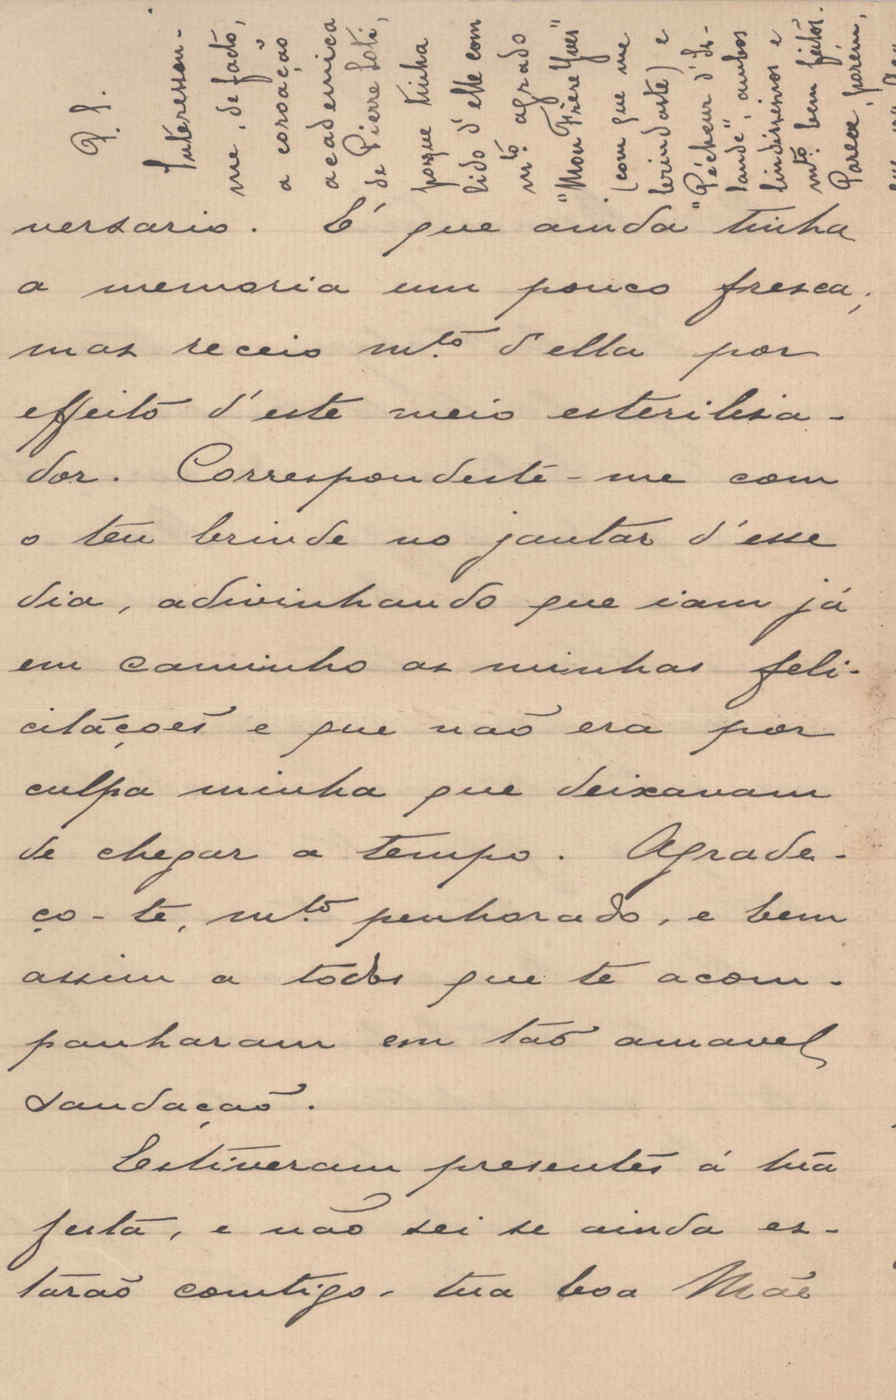 P. S.
Interessou-
me, de facto,
a coroação
academica
de Pierre Loti,
porque tinha
lido d'elle com
mto. agrado
"Mon Frère Yves"
(com que me
brindaste) e
"Pêcheur d'Is-
lande", ambos
lindissimos e
mto. bem feitos.
Parece, porém,
versario. É que ainda tinha
a memoria um pouco fresca;
mas receio mto. d'ella por
effeito d'este meio esterilisa-
dor. Correspondeste-me com
o teu brinde no jantar d'esse
dia, adivinhando que iam já
em caminho as minhas feli-
citações e que não era por
culpa minha que deixavam
de chegar a tempo. Agrade-
ço-te, mto. penhorado, e bem
assim a todos que te acom-
panharam em tão amavel
saudação.
Estiveram presentes á tua
festa, e não sei se ainda es-
tarão comtigo, tua boa Mãe